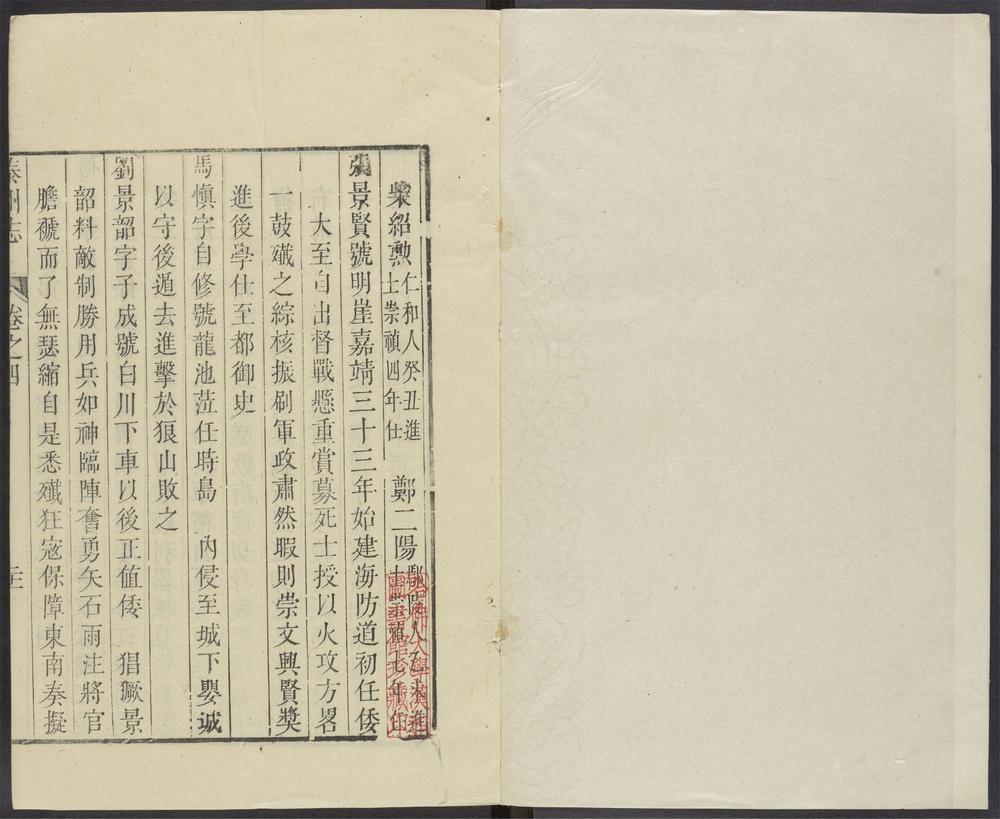 柴紹勲 仁和人癸丑進士崇禎四年仕 鄭二陽 鄢陵人己未進士崇禎七年任
張景賢號明崖嘉靖三十三年始建海防道初任倭
大至自出督戰懸重賞募死士授以火攻方畧
一鼓殱之綜核振刷軍政肅然暇則崇文興賢獎
進後學仕至都御史
馬慎字自修號龍池蒞任時島 內侵至城下嬰诚
以守後遁去進擊於狼山敗之
劉景韶字子成號白川下車以後正值倭 猖獗景
韶料敵制勝用兵如神臨陣奮勇矢石雨注將官
膽褫而了無瑟縮自是悉殲狂寇保障東南奏擬
泰州志 卷之四
哈佛大學漢和圖書館珍藏印